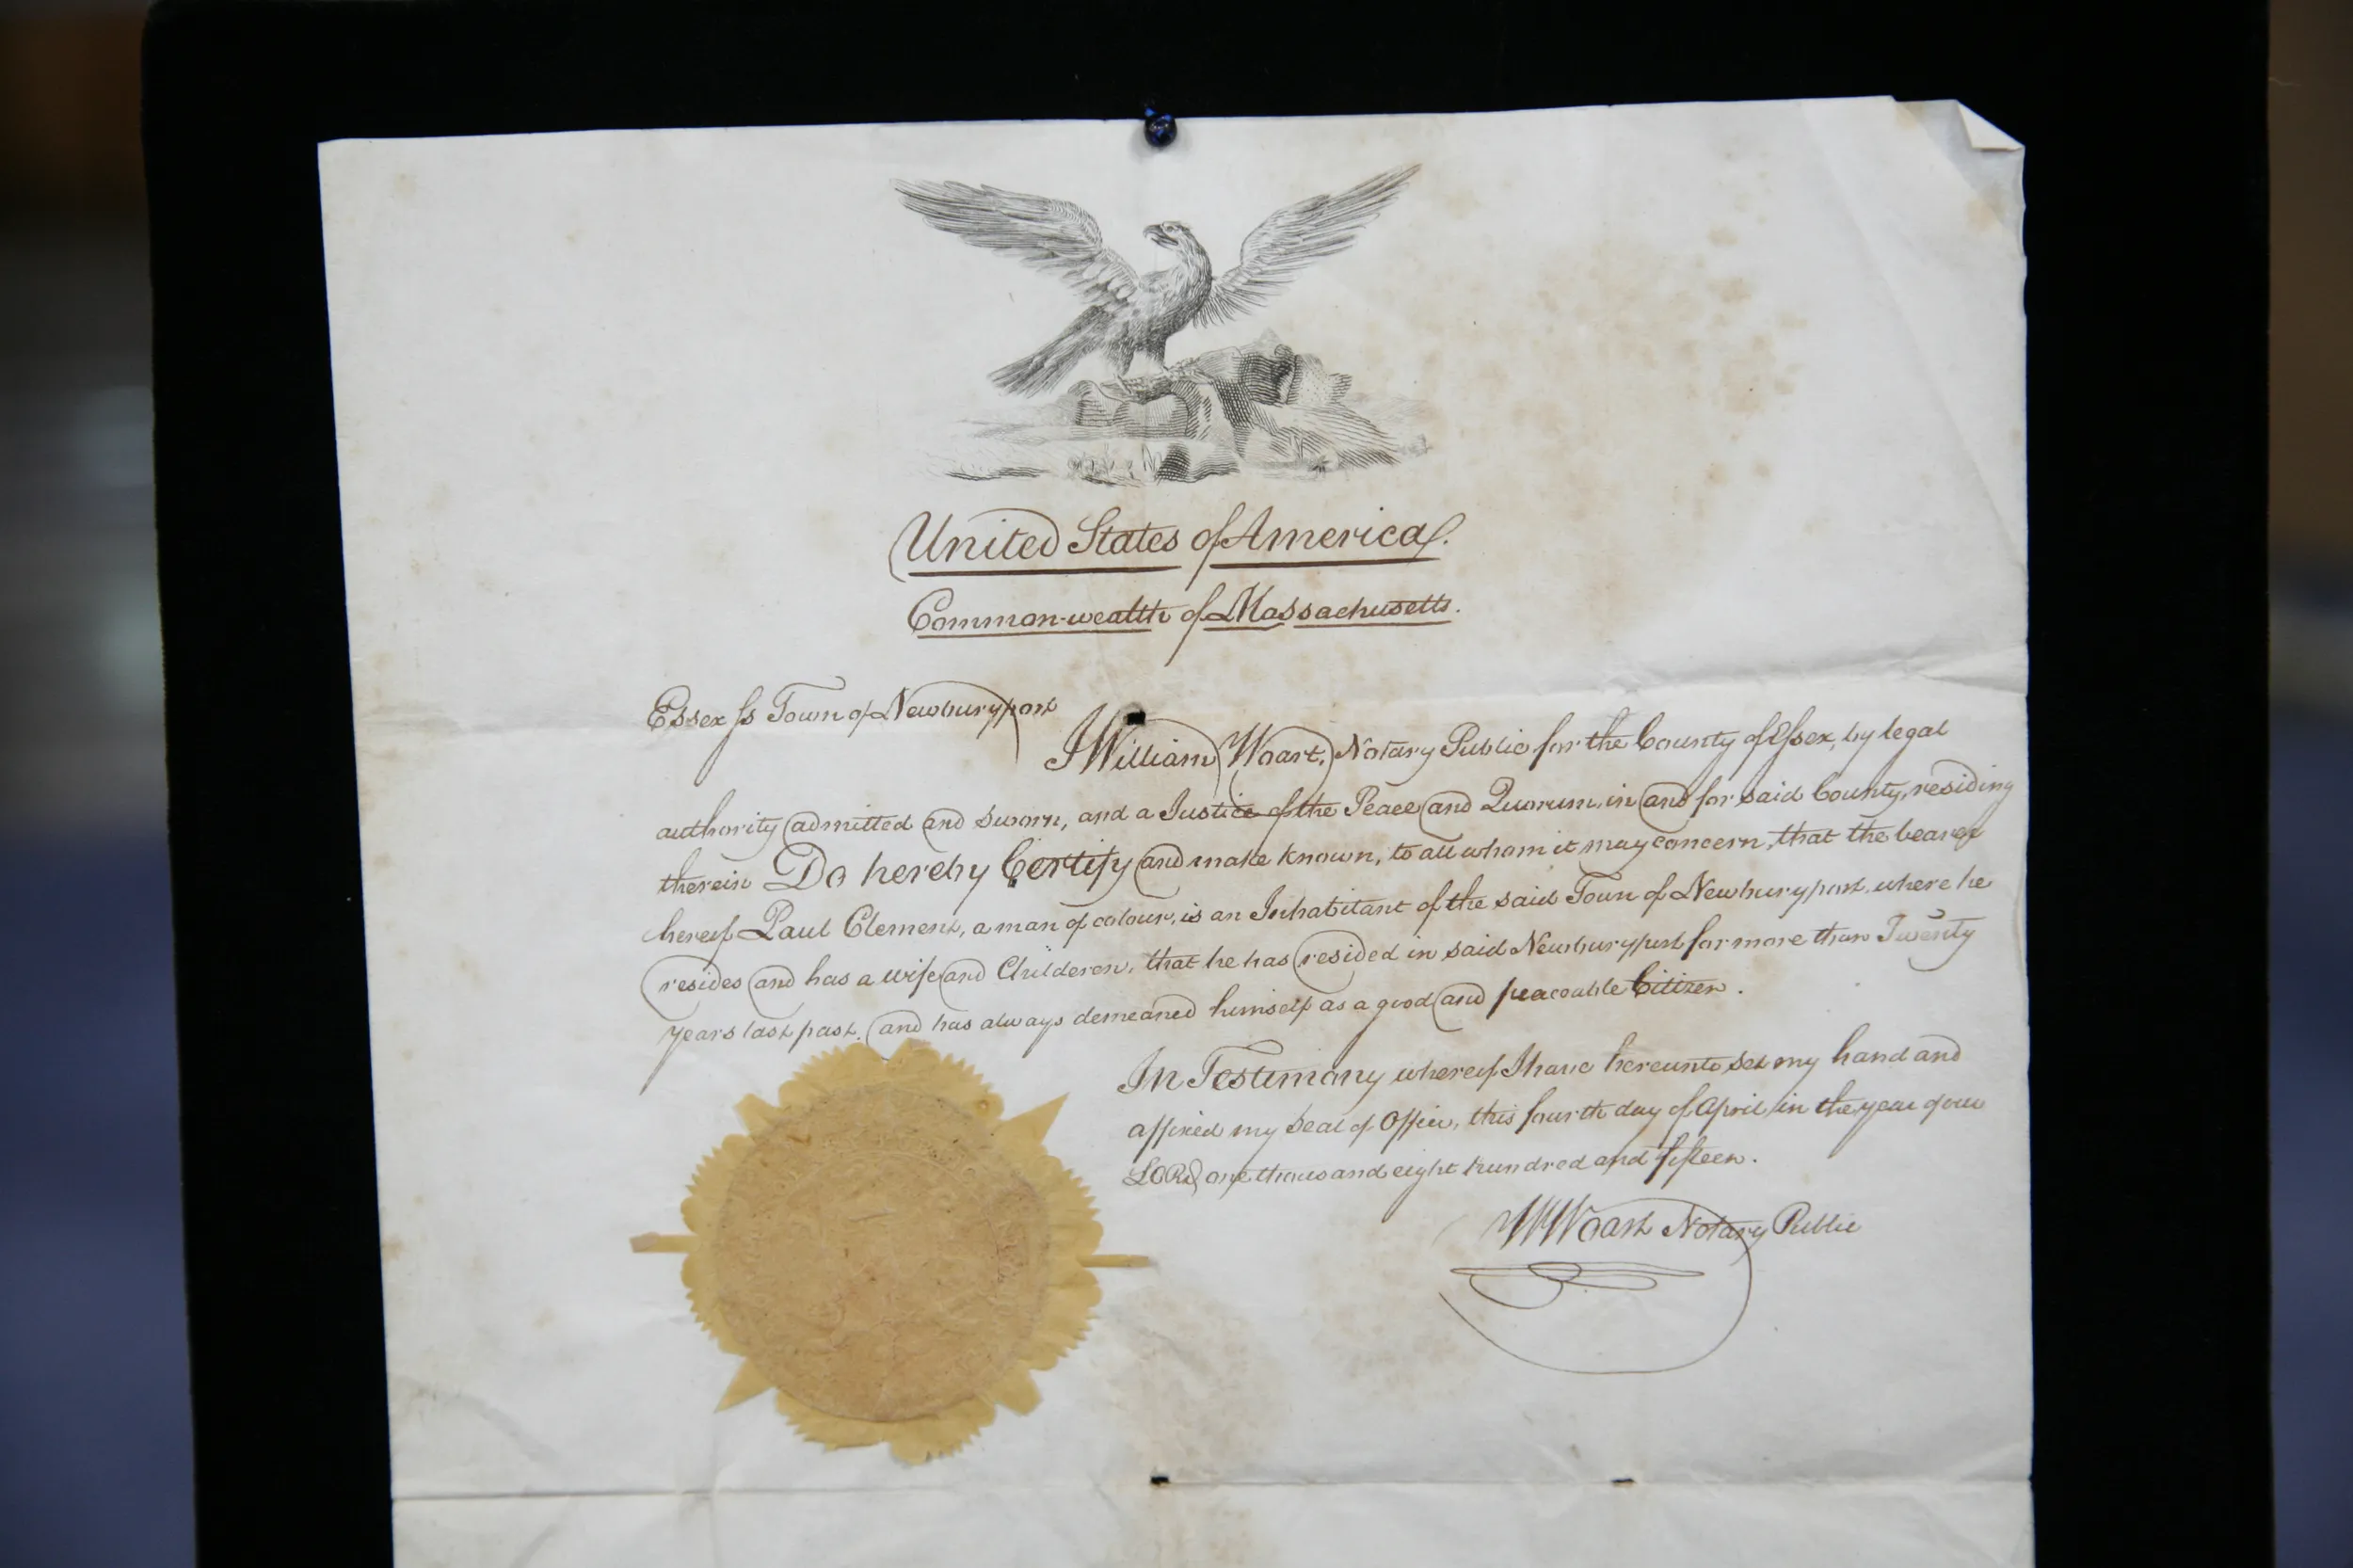 United States of America.
Common-wealth of Massachusetts.
Essex ss Town of Newburyport
I William Woart, Notary Public for the County of Essex, by legal
authority admitted and sworn, and a Justice of the Peace and Quorum, in and for said County, residing
therein Do hereby Certify and make known, to all whom it may concern, that the bearer
hereof Paul Clement, a man of colour, is an Inhabitant of the said Town of Newburyport, where he
resides and has a wife and Childeren, that he has resided in said Newburyport for more than Twenty
years last past, and has always demeaned himself as a good and peaceable Citizen.
In Testimony whereof I have hereunto set my hand and
affixed my Seal of Office, this fourth day of April in the year of our
LORD one thousand eight hundred and fifteen.
W Woart Notary Public